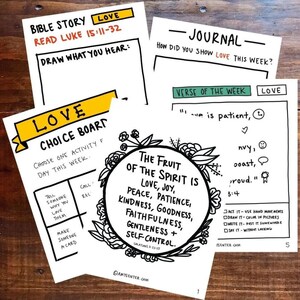 BIBLE STORY LOVE
READ LUKE 15:11-32
DRAW WHAT YOU HEAR:
JOURNAL
HOW DID YOU SHOW LOVE THIS WEEK?
VERSE OF THE WEEK LOVE
is patient,
LOVE
CHOICE BOARD
CHOOSE ONE ACTIVITY
DAY THIS WEEK.
TELL
SOMEONE
WHY YOU
LOVE
THEM
MAKE
SOMEONE
A CARD
THE FRUIT
OF THE SPIRIT IS
LOVE, JOY,
PEACE, PATIENCE,
KINDNESS, GOODNESS,
FAITHFULNESS,
GENTLENESS +
SELF-CONTROL.
SAY IT WITHOUT LOOKING
5